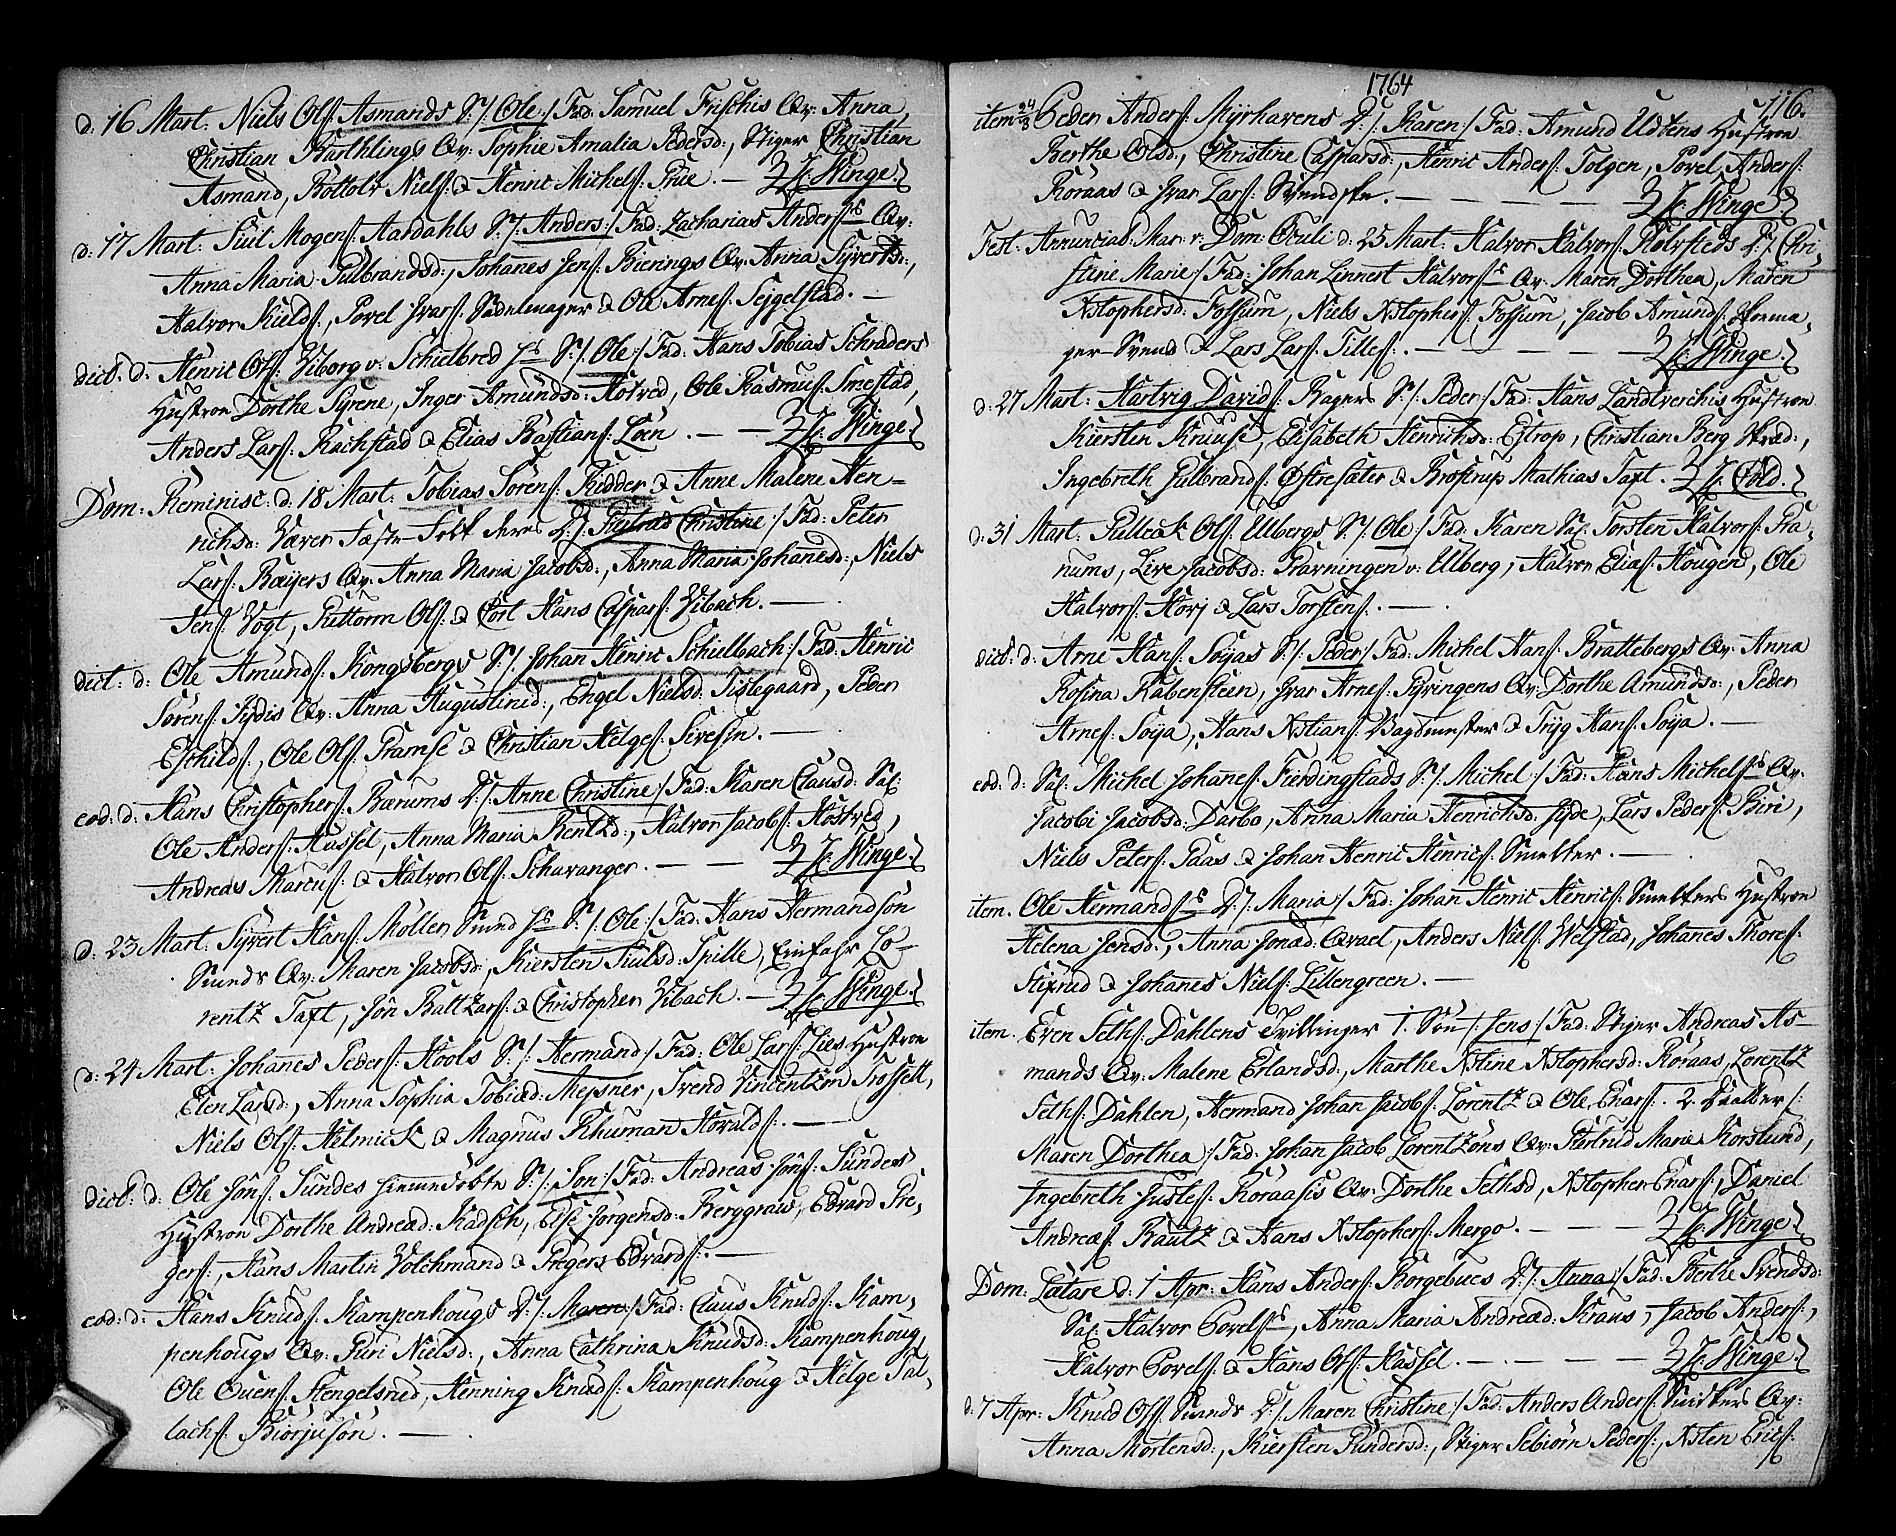 d. 16 Mart: Niels Ols: Asmands S: /: Ole :/ Fad: Samuel Frischis Qv: Anna,
Christian Barthlings Qv: Sophie Amalia Pedersd:, Stiger Christian
Asmand, Bottolv Niels: & Henric Michels: Prüe. — H: Winge.
d. 17 Mart: Siul Mogens: Aardahls S: /: Anders :/ Fad: Zacharias Anders: Qv:
Anna Maria Gulbrandsd:, Johannes Jens: Bierings Qv: Anna Syvertsd:,
Halvor Kields:, Povel Ivars: Sadelmager & Ole Arnes: Sejgelstad. —
dict: d: Henric Ols: Viborg v: Schielbred S: /: Ole :/ Fad: Hans Tobias Schraders
Hustroe Dorthe Syrene, Inger Amundsd: Hotved, Ole Rasmus: Smestad,
Anders Lars: Rachstad & Elias Bastians: Loen. — — H: Winge.
Dom: Reminisc: d. 18 Mart: Tobias Sørens: Kidder & Anne Malene Hen-
richsd: Været Fæste-Folk deres D: /: Christine :/ Fad: Peter
Lars: Bøyers Qv: Anna Maria Jacobsd:, Anna Maria Johanesd:, Niels
Jens: Vogt, Guttorm Ols: & Cort Hans Caspars: Vibach. —
dict: d: Ole Amunds: Kongsbergs S: /: Johan Henric Schielbach :/ Fad: Henric
Sørens: Sydis Qv: Anna Augustinid:, Engel Nielsd: Tislegaard, Peder
Eschilds:, Ole Ols: Gramse & Christian Helges: Sivesin. —
eod: d: Hans Christophers: Bærums D: /: Anne Christine :/ Fad: Karen Clausd: Sal:
Ole Anders: Hassel, Anna Maria Rentzd:, Halvor Jacobs: Hostved,
Andreas Marcus: & Halvor Ols: Schavanger. — — H: Winge.
d. 23 Mart: Syvert Hans: Møller Svend S: /: Ole :/ Fad: Hans Hermandsøn
Svends Qv: Maren Jacobsd:, Kiersten Siulsd: Spille, Einfahr Lo-
rentz Taft, Jon Baltzars: & Christopher Vibach. — H: Winge.
d. 24 Mart: Johanes Peders: Hools S: /: Hermand :/ Fad: Ole Lars: Lies Hustroe
Elen Larsd:, Anna Sophia Tobiæd: Meisner, Svend Vincentzøn Trossett,
Niels Ols: Helmick & Magnus Khuman Horalds: —
dict: d: Ole Jons: Sundes S: /: Jon :/ Fad: Andreas Jons: Sundes
Hustroe Dorthe Andreæd: Kadsch, Else Jørgensd: Berggraw, Edvard Pre-
gers:, Hans Martin Volchmand & Pregers Edvards: —
eod: d: Hans Knuds: Kampenhougs D: /: Maren :/ Fad: Claus Knuds: Kam-
penhougs Qv: Guri Nielsd:, Anna Cathrina Knudsd: Kampenhoug,
Ole Ouens: Stengelsrud, Henning Knuds: Kampenhoug & Helge Tal-
lachs: Biørjusøn. —
1764
116.
item 24/3 Peder Anders: Myrhavens D: /: Karen :/ Fad: Amund Udtens Hustroe
Berthe Olsd:, Christine Casparsd:, Henric Anders: Tolgen, Povel Anders:
Roraas & Ivar Lars: Svendske. — — — — H: Winge
Fest: Annunciat: Mar: v: Dom: Oculi d: 25 Mart: Halvor Halvors: Rolvsteds D: /: Chri-
stine Marie :/ Fad: Johan Linnert Halvors: Qv: Maren Dorthea, Maren
Xstophersd: Fossum, Niels Xstophers: Fossum, Jacob Amunds: Skoma-
ger-Svend & Lars Lars: Tilles: — — — H: Winge.
d. 27 Mart: Hartvig Davids: Bagers S: /: Peder :/ Fad: Hans Landtverchis Hustroe
Kiersten Kruuse, Elisabeth Henrichsd: Estrop, Christian Berg,
Ingebreth Gulbrands: Østresæter & Brostrup Mathias Taft. H: Cold.
d. 31 Mart: Gulleick Ols: Ulbergs S: /: Ole :/ Fad: Karen Sal: Torsten Halvors: Gra-
nums, Live Jacobsd: Grarningen v: Ulberg, Halvor Elias: Hougen, Ole
Halvors: Horj & Lars Torstens: —
dict: d: Arne Hans: Soyas S: /: Peder :/ Fad: Michel Hans: Brattebergs Qv: Anna
Rosina Rabensteen, Ivar Arnes: Gyringens Qv: Dorthe Amundsd:, Peder
Arnes: Soya, Hans Xstians: Bagdmester & Tryg Hans: Soya. —
eod: d: Sal: Michel Johanes: Fierdingstads S: /: Michel :/ Fad: Hans Michels: Qv:
Jacobi Jacobsd: Darbo, Anna Maria Henrichsd: Hyde, Lars Peders: Buri,
Niels Peters: Paas & Johan Henric Henrics: Smelter. —
item. Ole Hermands: D: /: Maria :/ Fad: Johan Henric Henrics: Smelters Hustroe
Helena Jensd:, Anna Jonæd: Qvael, Anders Niels: Velstad, Johanes Thores:
Stixrud & Johanes Niels: Lillengreen. —
item. Even Seths: Dahlens Tvillinger 1. Søn /: Jens :/ Fad: Stiger Andreas As-
mands Qv: Malene Erlandsd:, Marthe Xstine Xstophersd: Roraas, Lorentz
Seths: Dahlen, Hermand Johan Jacobs: Lorentz & Ole Enars: 2. Daatter /:
Maren Dorthea :/ Fad: Johan Jacob Lorentzøns Qv: Giertrud Maria Korslund,
Ingebreth Justes: Roraasis Qv: Dorthe Sethsd, Xstopher Enars:, Daniel
Andreæs: Bautz & Hans Xstophers: Mergo. — — — H: Winge
Dom: Lætare d: 1 Apr: Hans Anders: Borgebues D: /: Anna :/ Fad: Berthe Svendsd:
Sal: Halvor Povels:, Anna Maria Andreæd: Kraus, Jacob Anders:,
Halvor Povels: & Hans Ols: Hassel. — — — H: Winge.
d: 7 Apr: Knud Ols: Svends D: /: Maren Christine :/ Fad: Anders Anders: Snidkers Qv:
Anna Mortensd:, Kiersten Gundersd:, Stiger Sebiørn Peders:, Xsten Erics: